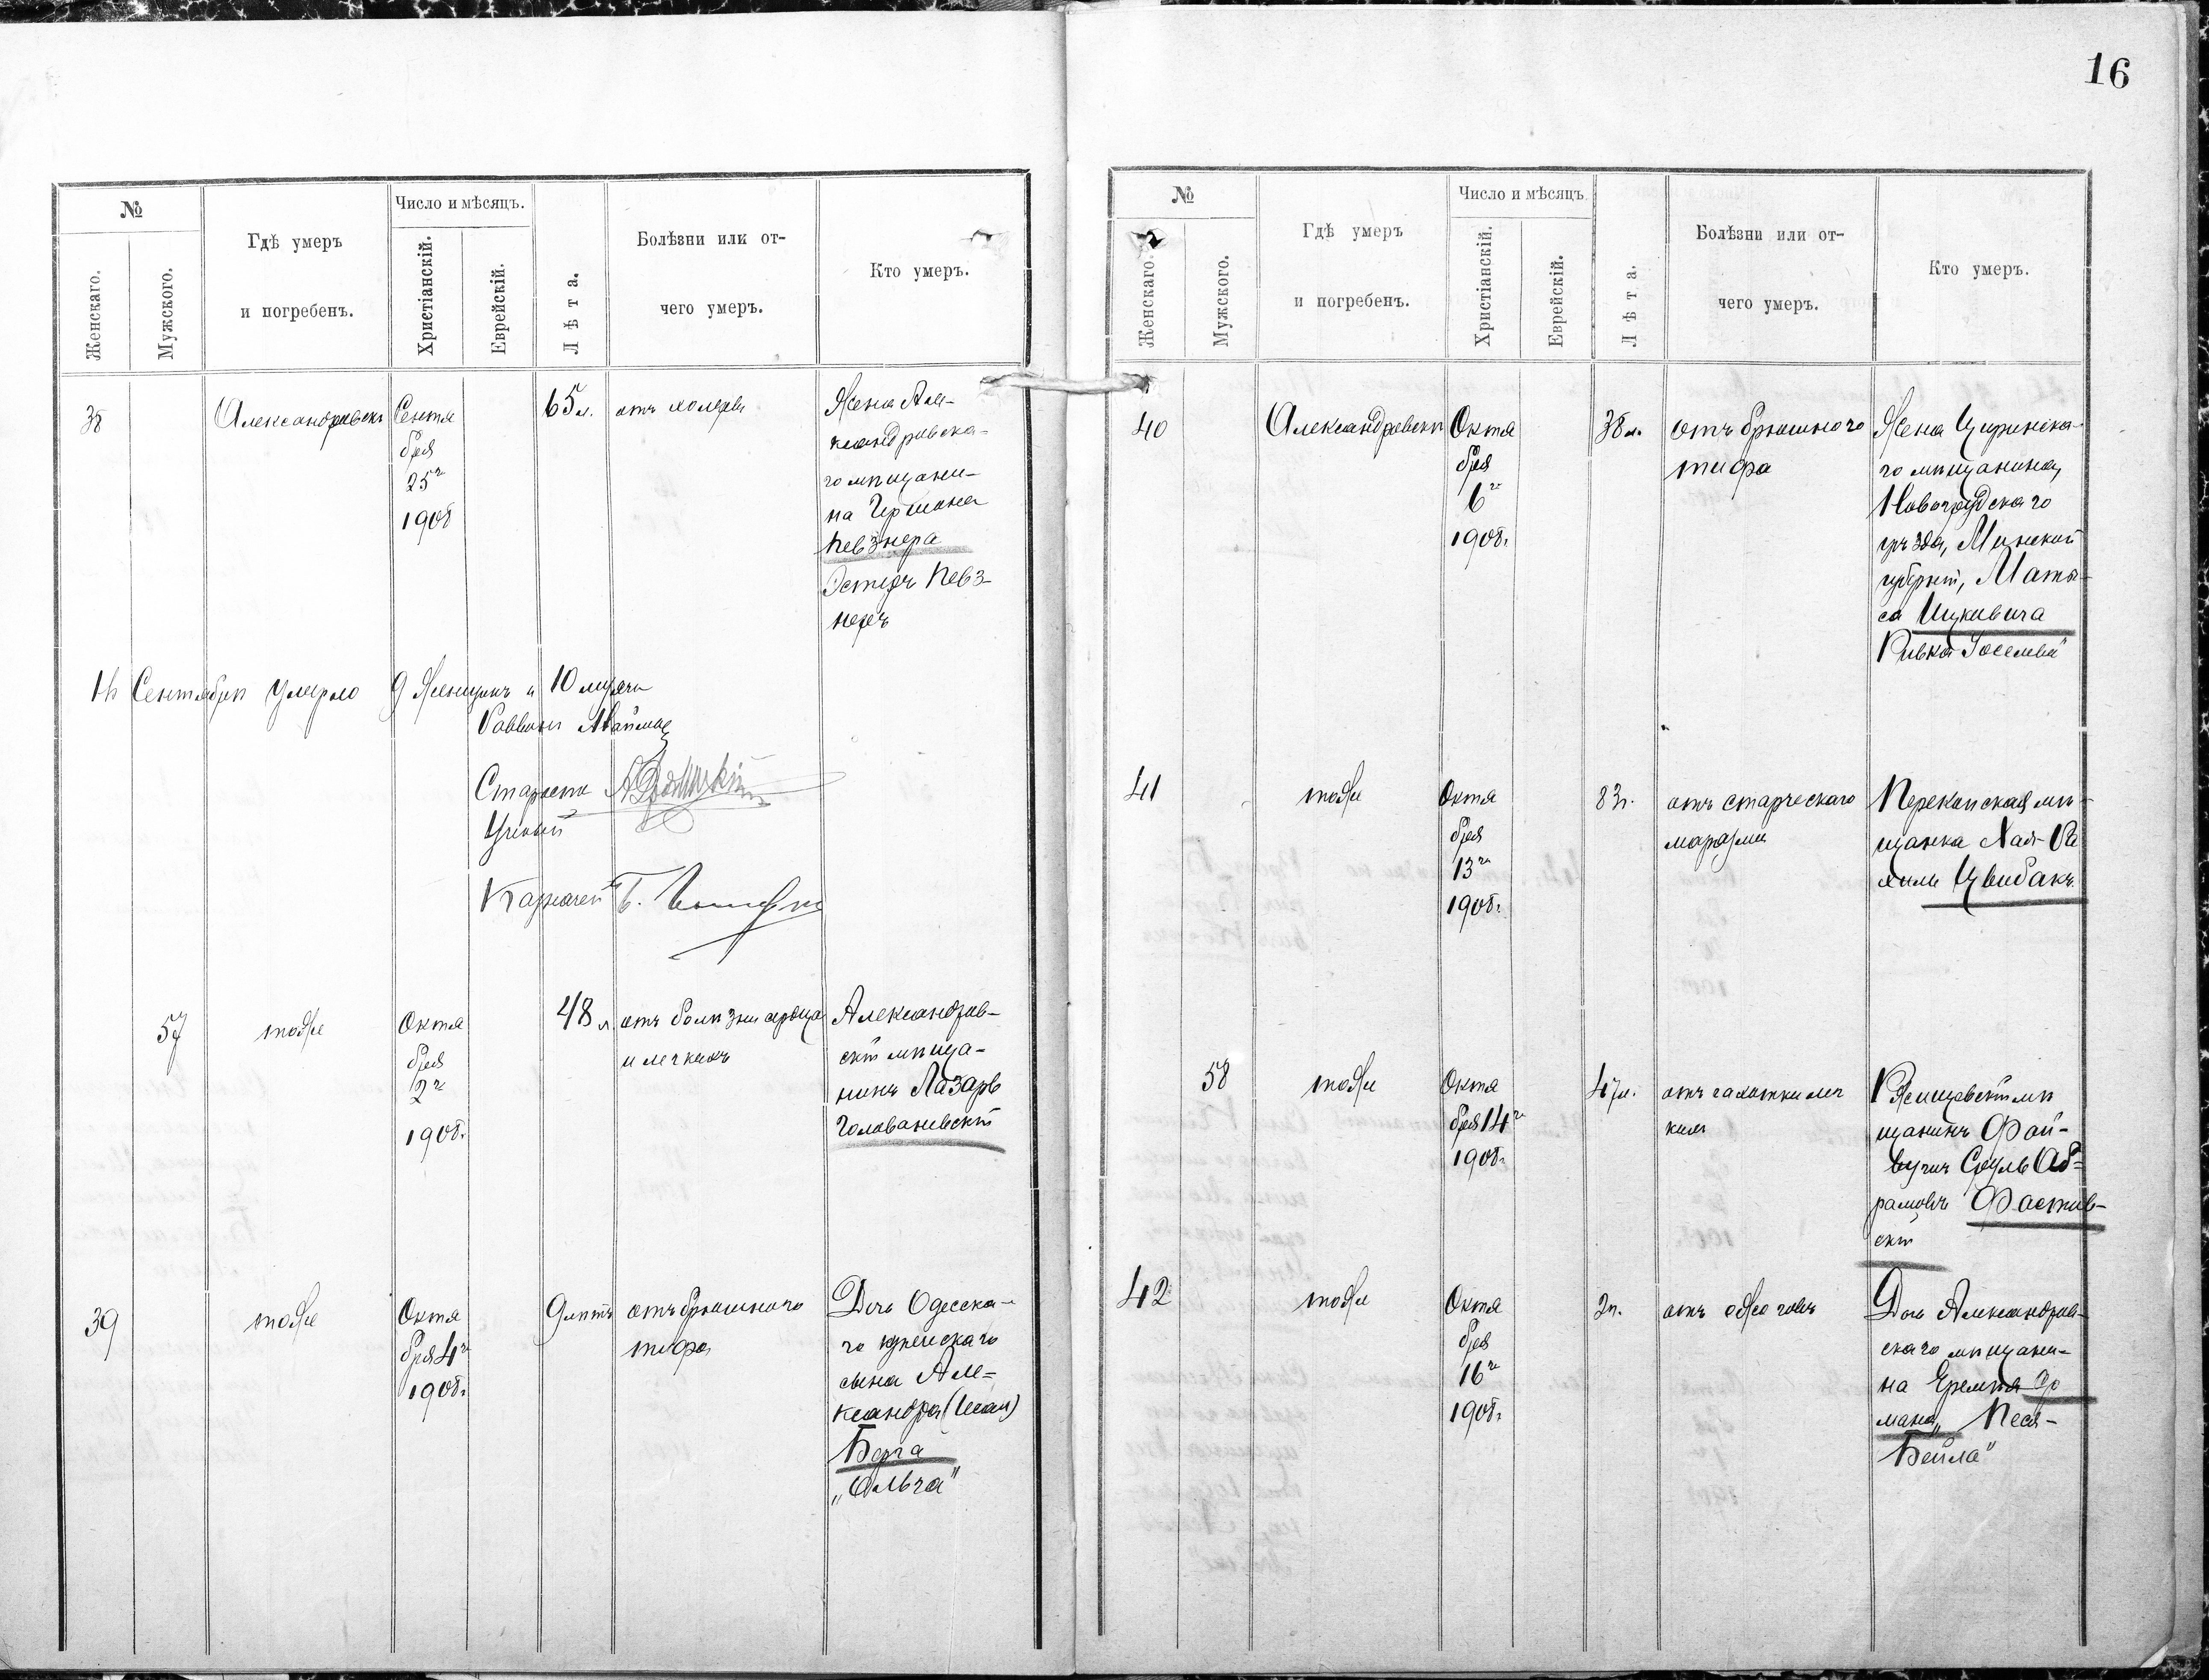 16
№
Женскаго.
Мужского.
Гдѣ умеръ
и погребенъ.
Число и мѣсяцъ.
Христіанскій.
Еврейскій.
Лѣта.
Болѣзни или от-
чего умеръ.
Кто умеръ.
38
Александровскъ
Сентя
бря
25го
1908
65 л.
отъ холеры
Жена Але-
ксандровска-
го мѣщани-
на Гершона
Певзнера
Эстеръ Певз-
неръ
Въ Сентябрѣ умерло 9 Женщинъ и 10 мужчи
Раввинъ
Староста
Ученый
Казначей
57
тоже
Октя
бря
2го
1908г.
48 л.
отъ болѣзни сердца
и легкихъ
Александров-
скій мѣща-
нинъ Лазарь
Голованевскій
39
тоже
Октя
бря 4го
1908г.
9 лѣтъ
отъ брюшного
тифа
Дочь Одесска-
го купеческаго
сына Але-
ксандра (Исаи)
Берга
„Ольга"
№
Женскаго.
Мужского.
Гдѣ умеръ
и погребенъ.
Число и мѣсяцъ
Христіанскій.
Еврейскій.
Лѣта.
Болѣзни или от-
чего умеръ.
Кто умеръ.
40
Александровскъ
Октя
бря
6го
1908г.
38 л.
отъ брюшного
тифа
Жена Циринска-
го мѣщанина,
Новогрудскаго
уѣзда, Минской
губерніи, Маты-
са Ицковича
Ривка Іоселева"
41
тоже
Октя
бря
13го
1908г.
83 г.
отъ старческаго
маразма
Перекопская мѣ-
щанка Хая-Ра
хиль Цвибакъ
58
тоже
Октя
бря 14го
1908г.
47 л.
отъ чахотки лег
кихъ
Ржищевскій мѣ
щанинъ Фай-
Срулъ Аб-
рамовъ Фастов-
скій
42
тоже
Октя
бря
16го
1908г.
2 г.
отъ ожоговъ
Дочь Александров-
скаго мѣщани-
на Еремія Фр
мана „Песя-
Бейла"